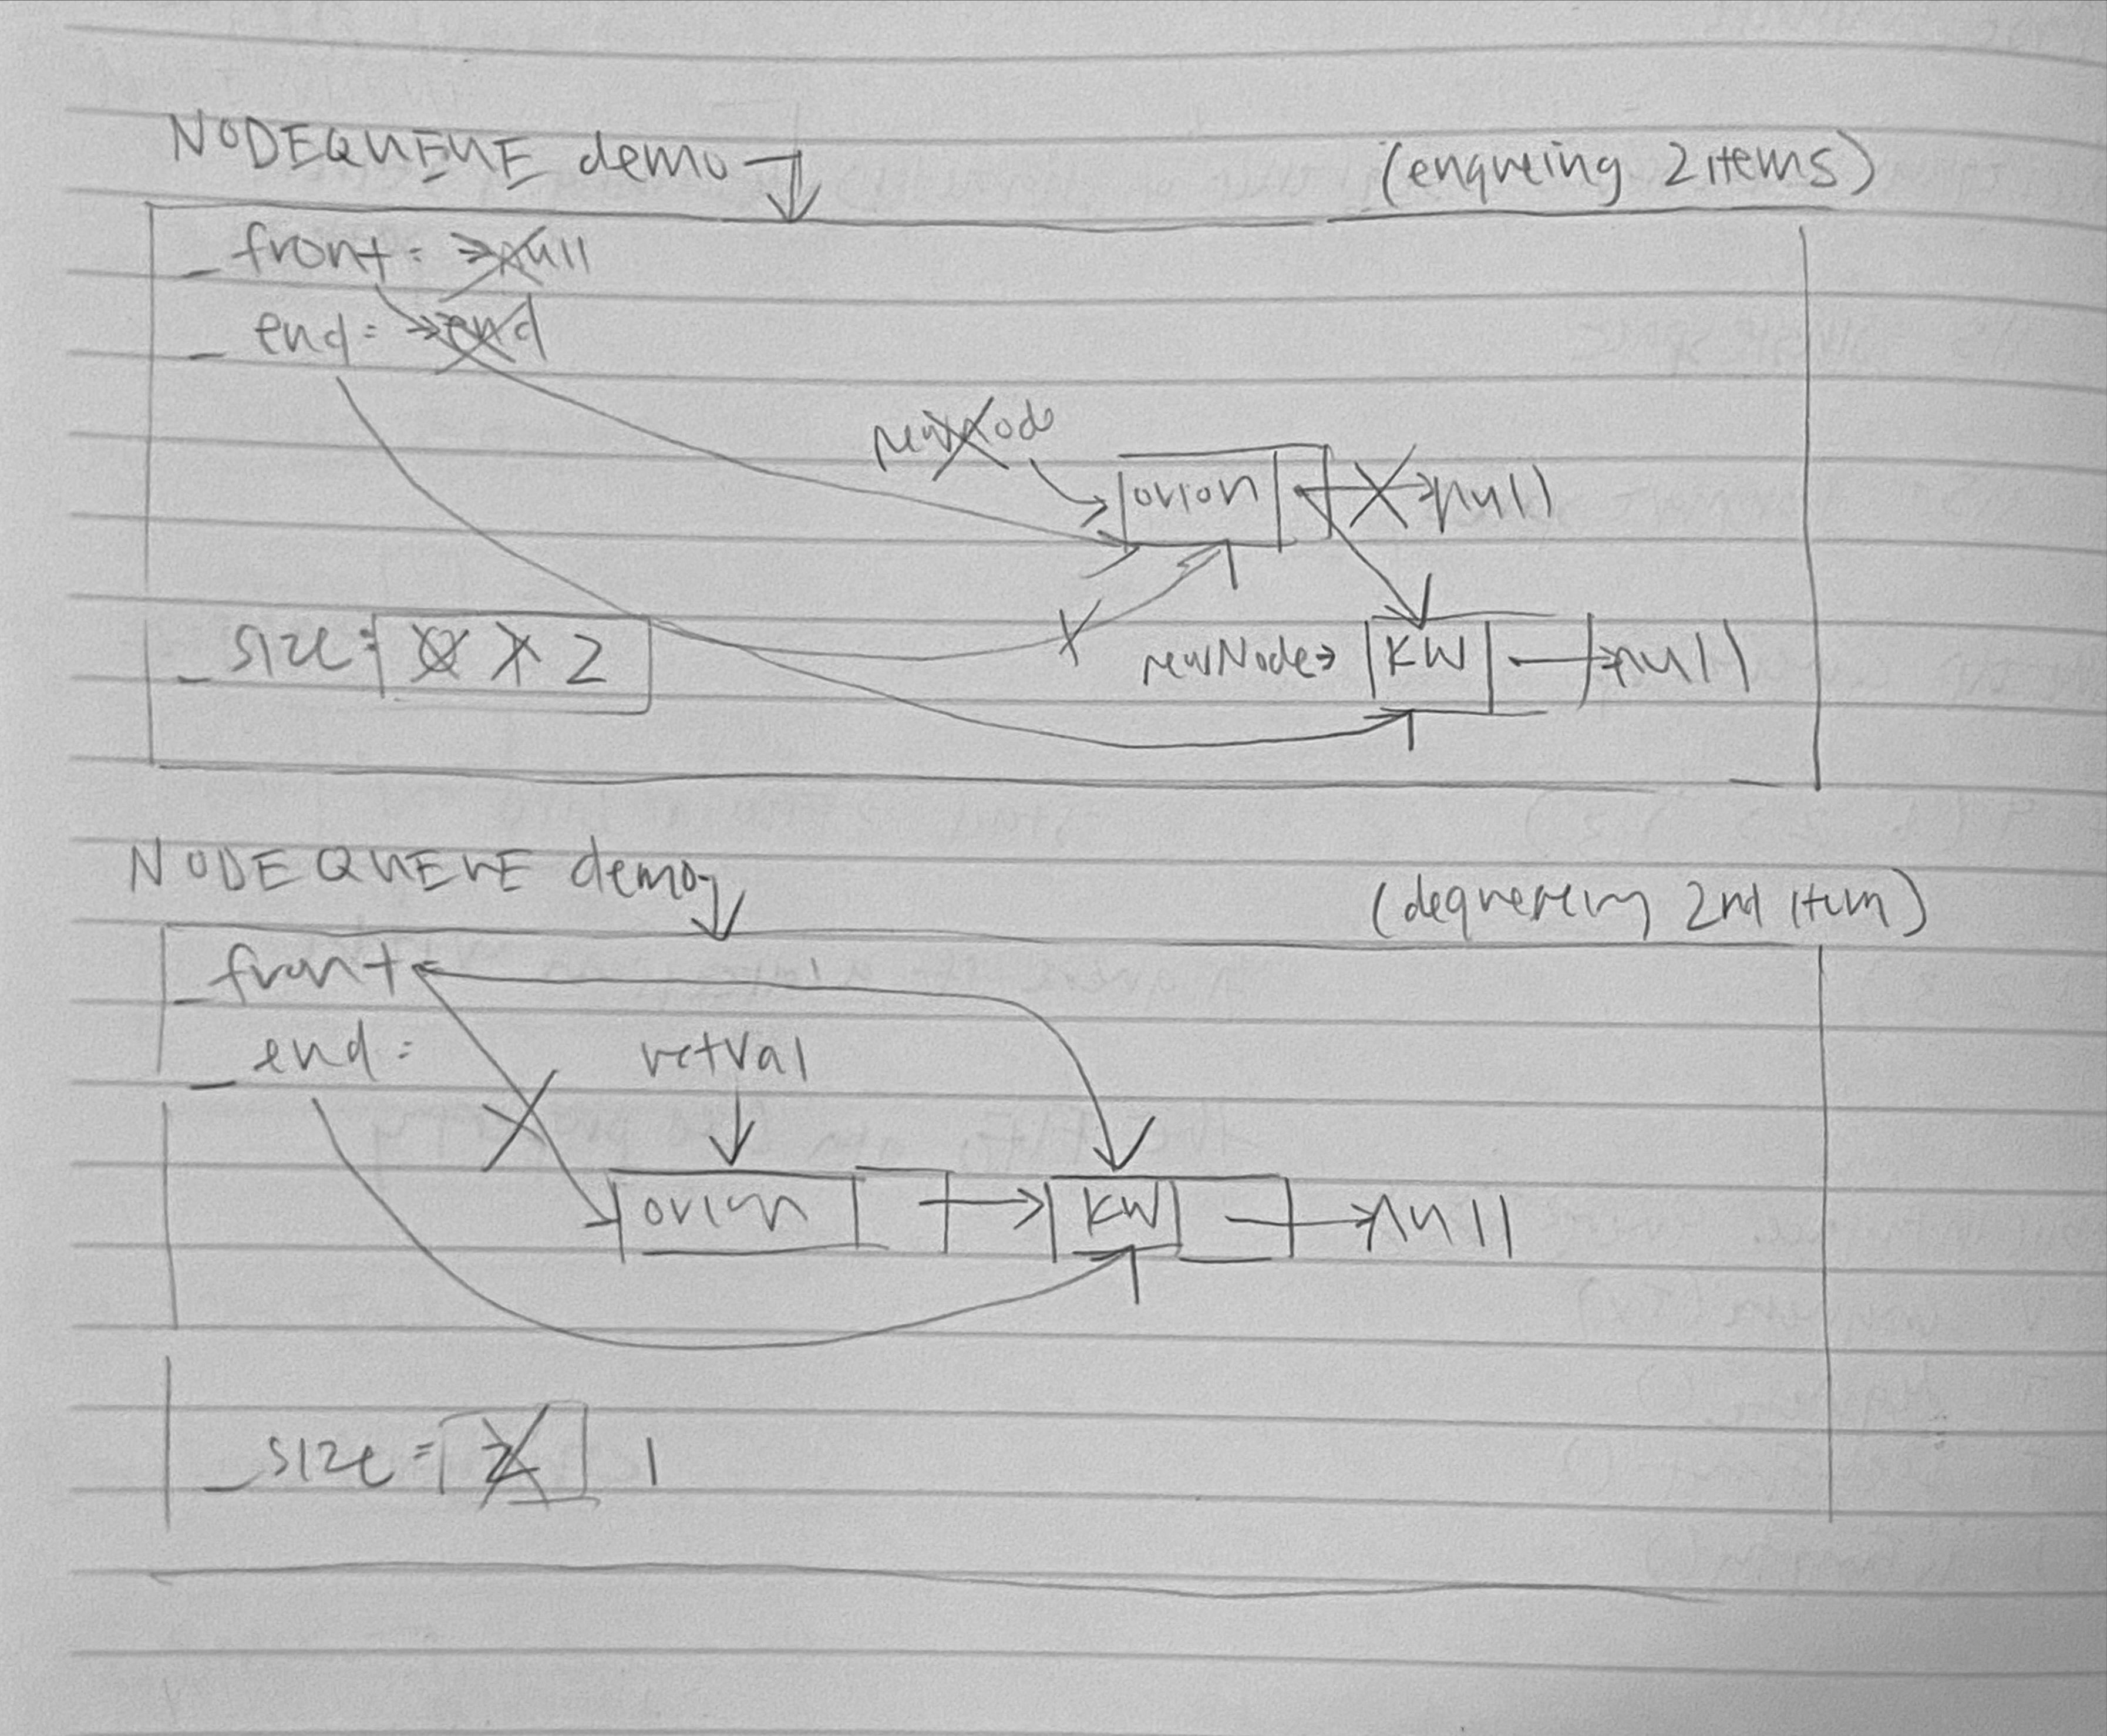 NODEQUEUE demo (enqueing 2 items)
_front: null
_end: end
newNode
orion null
_size: 0 1 2 newNode KW null
NODEQUEUE demo (dequeueing 2nd item)
_front
_end: retVal
orion KW null
_size = 2 1